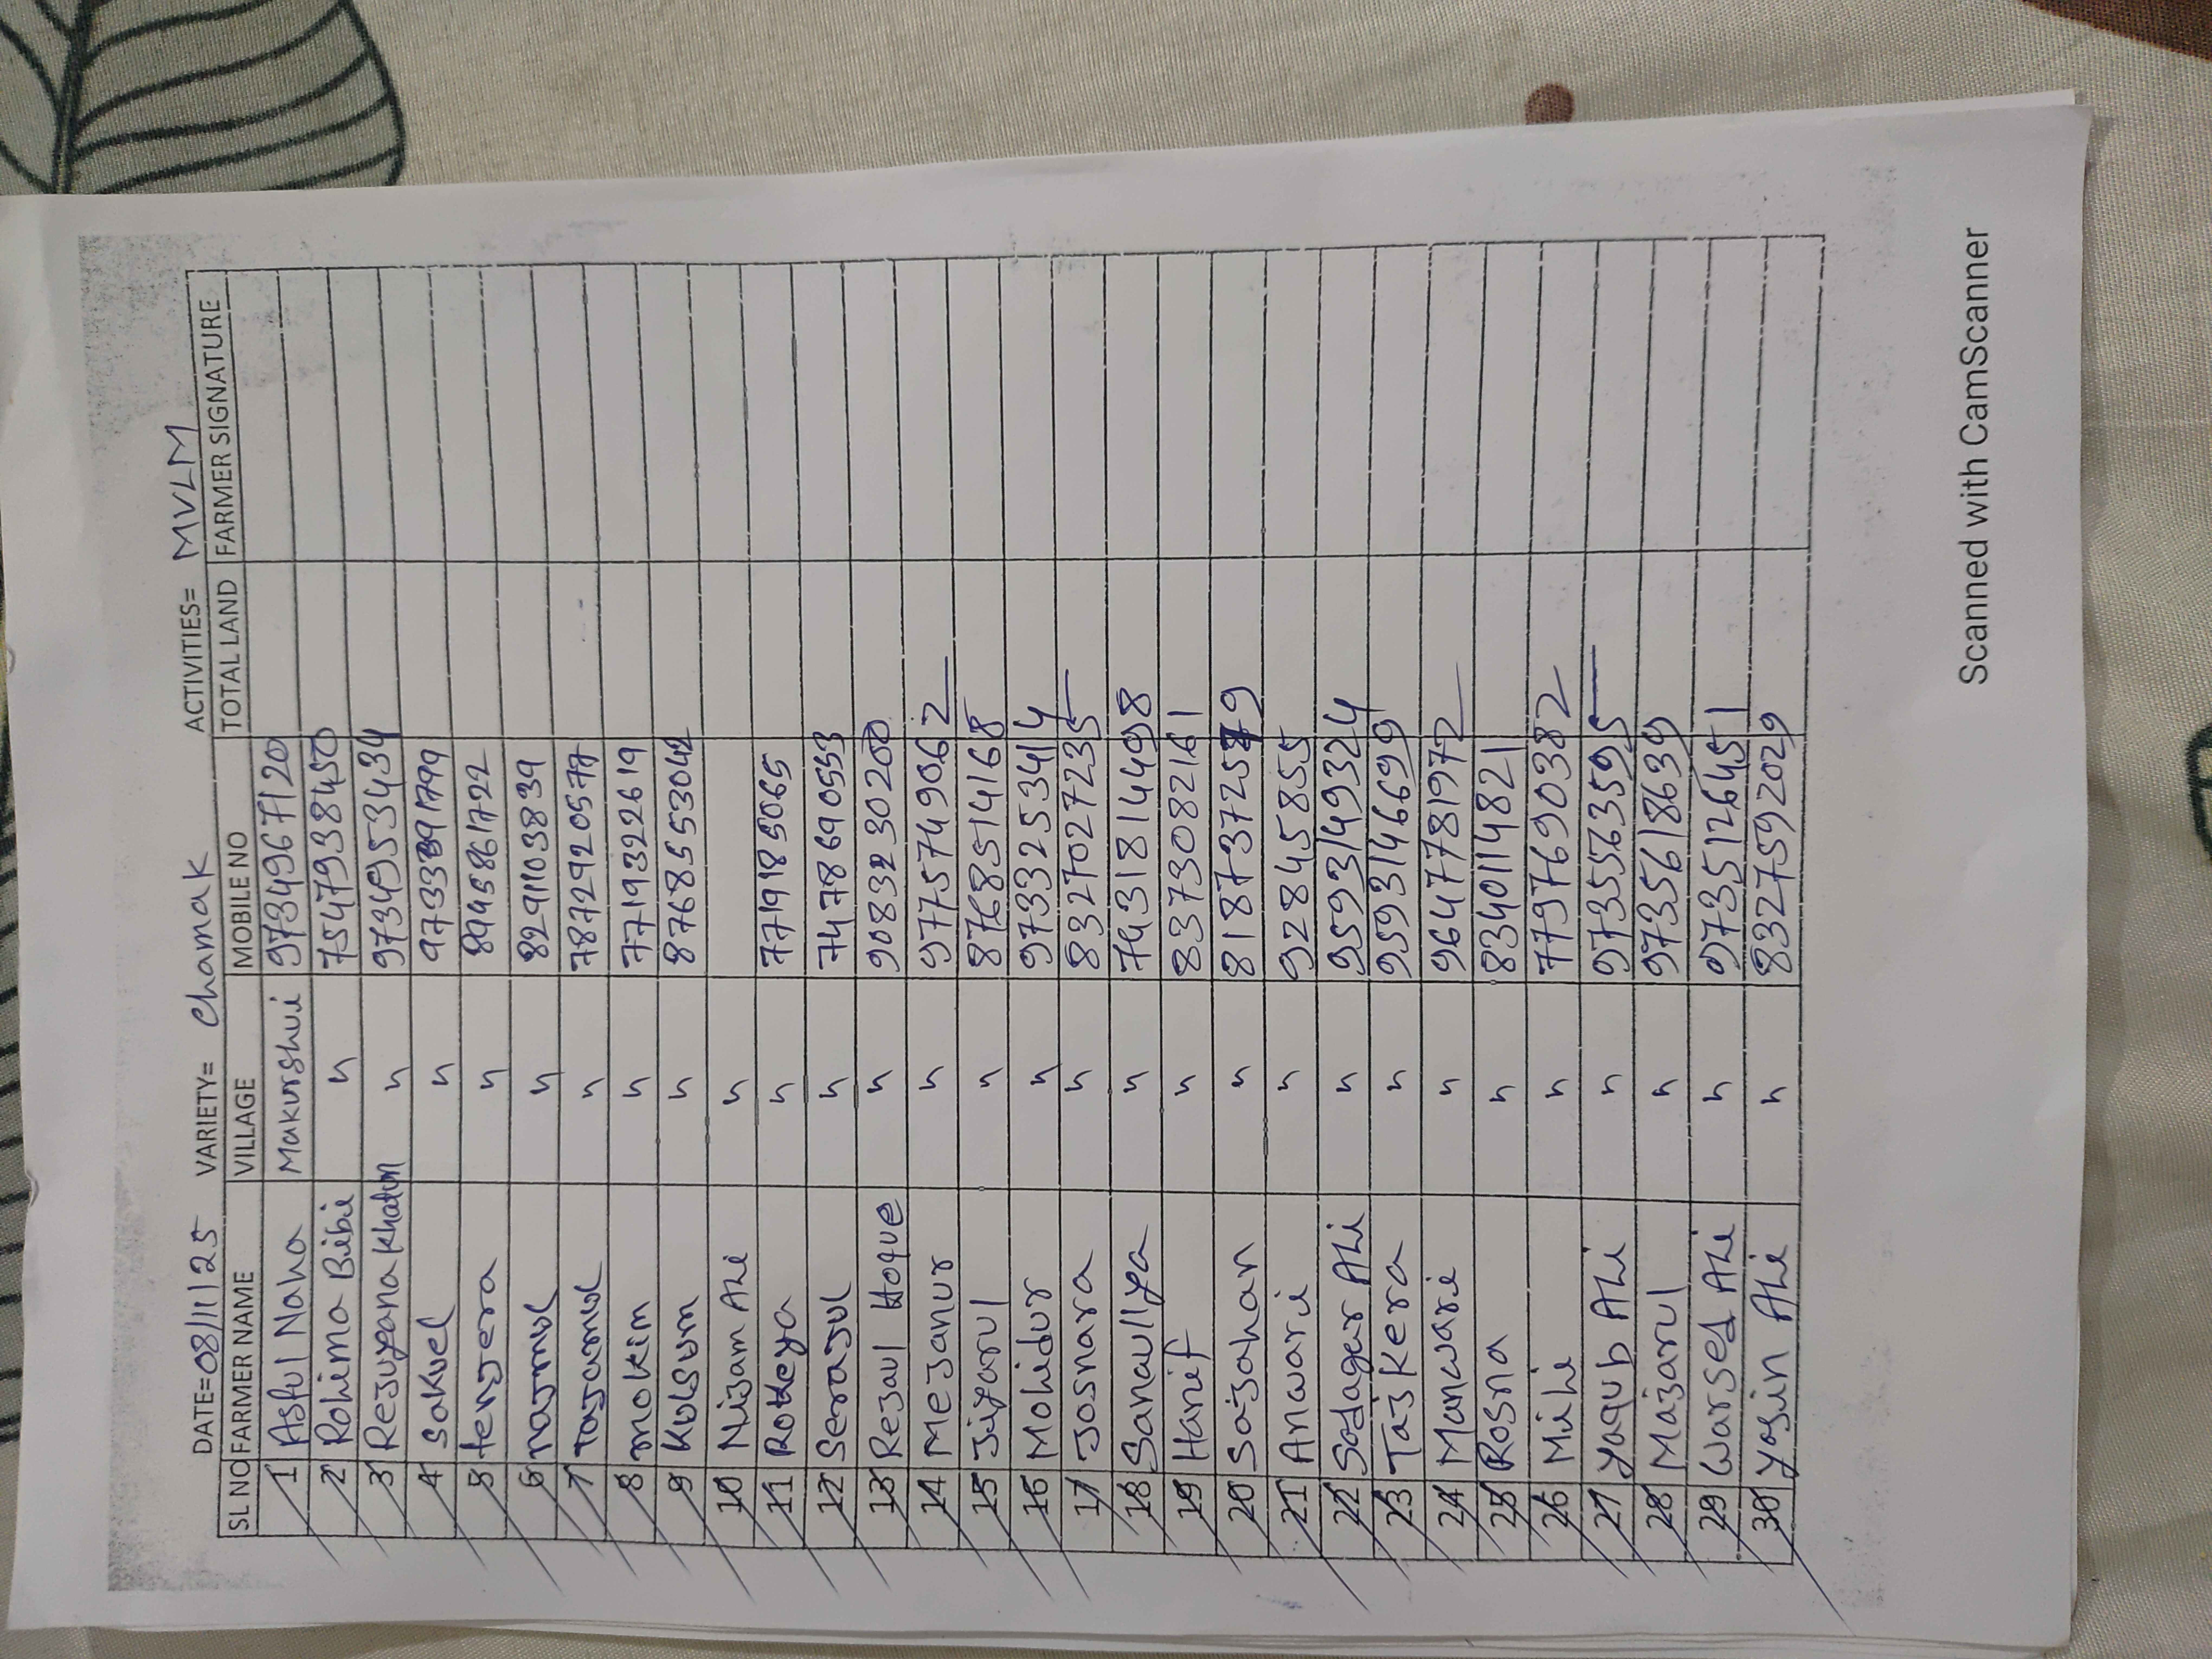 DATE=08/11/25 VARIETY= Chamak ACTIVITIES= MVLM
SL NO FARMER NAME VILLAGE MOBILE NO TOTAL LAND FARMER SIGNATURE
1 Asful Naha Makurshui 9734967120
2 Rohima Bibi " 7547938450
3 Rejuyana Khatun " 9734953434
4 Sakuel " 9733891799
5 tenjera " 8945861722
6 najmul " 8291103839
7 Tajamul " 7872920577
8 mokim " 7719322619
9 Kulsum " 8768553042
10 Nijam Ali "
11 Rokeya " 7719185065
12 Serajul " 7478690553
13 Rejaul Hoque " 9083230200
14 Mejanur " 9775749062
15 Jiyarul " 8768514168
16 Mohidur " 9733253414
17 Josnara " 8327027235
18 Sanaullya " 7431814498
19 Hanif " 8373082161
20 Sajahan " 8187372579
21 Anwari " 928458555
22 Sodagar Ali " 9593149324
23 Tajkera " 9593146699
24 Manwari " 9647781972
25 Rosna " 8340114821
26 Mili " 7797690382
27 Yaqub Ali " 9735563595
28 Majarul " 9735618639
29 Warsed Ali " 9735126451
30 Yasin Ali " 8327592029
Scanned with CamScanner